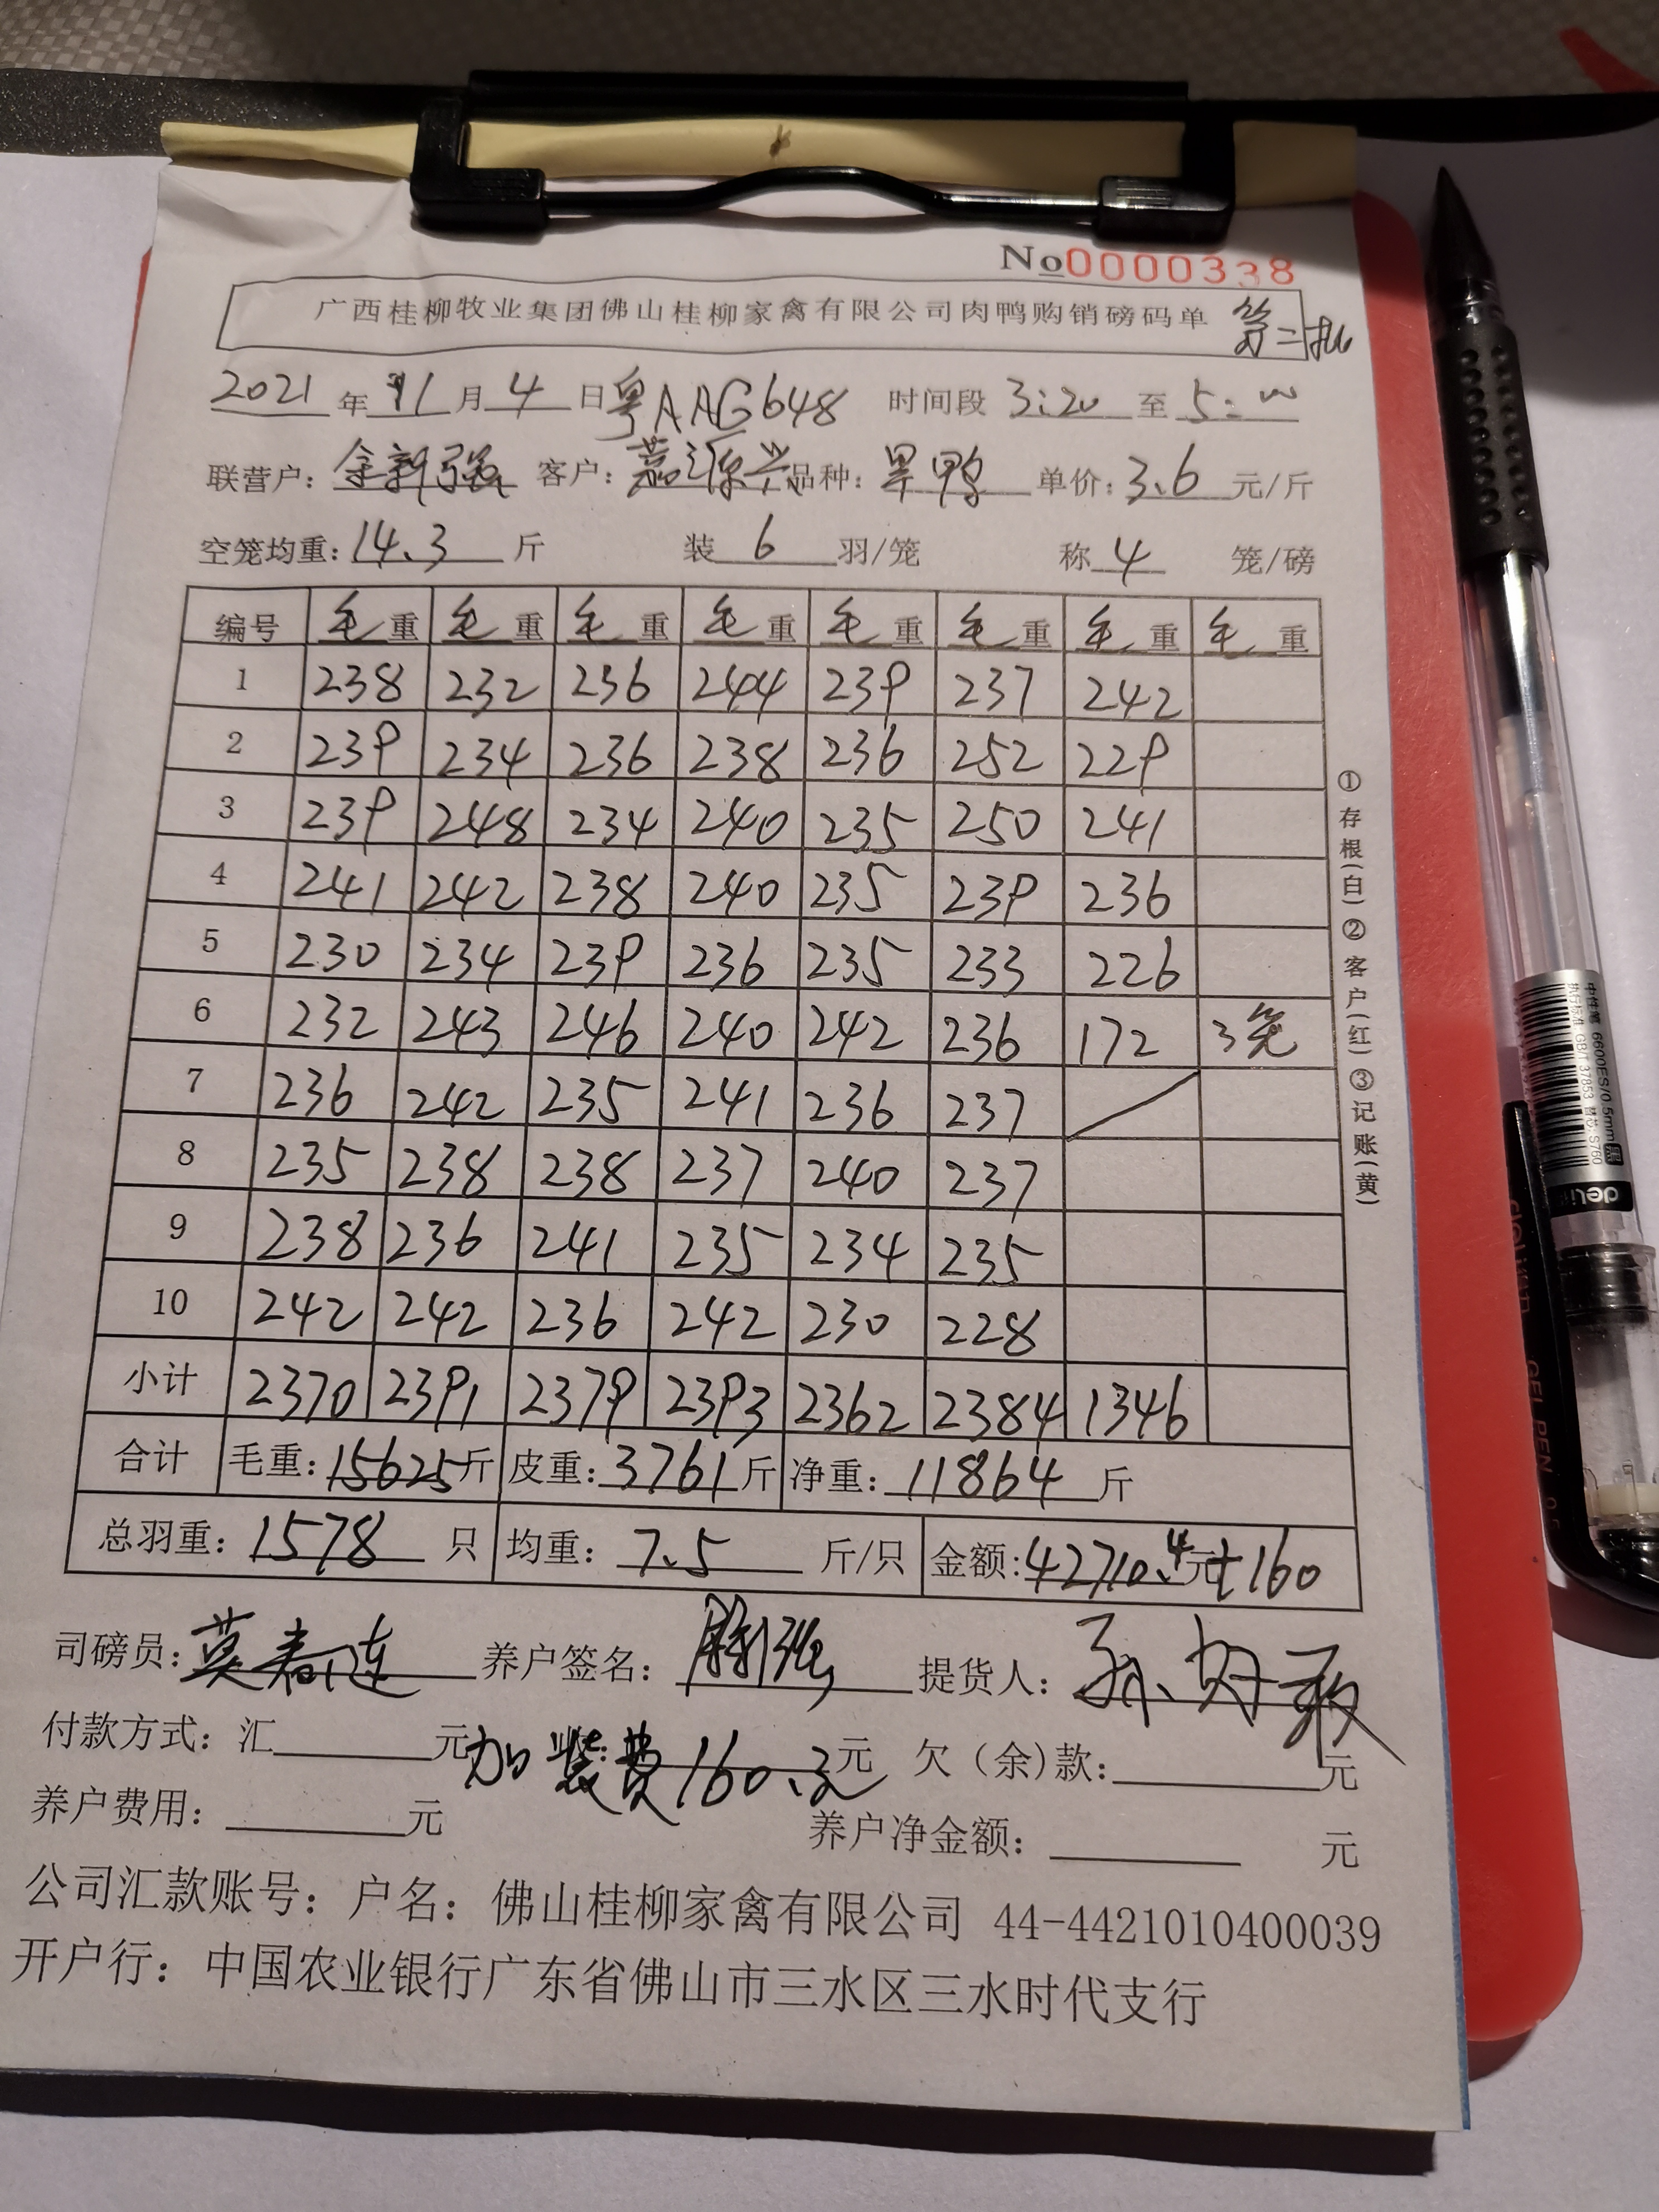 No0000338
广西桂柳牧业集团佛山桂柳家禽有限公司肉鸭购销磅码单 第二批
2021年11月4日 粤AAG648 时间段 3:20 至 5:00
联营户：余新强 客户：荔源兴 品种：旱鸭 单价：3.6元/斤
空笼均重：14.3斤 装6羽/笼 称4 笼/磅
编号 毛重 毛重 毛重 毛重 毛重 毛重 毛重 毛重
1 238 232 236 244 239 237 242
2 239 234 236 238 236 252 229
3 239 248 234 240 235 250 241
4 241 242 238 240 235 239 236
5 230 234 239 236 235 233 226
6 232 243 246 240 242 236 172 3笼
7 236 242 235 241 236 237
8 235 238 238 237 240 237
9 238 236 241 235 234 235
10 242 242 236 242 230 228
小计 2370 2391 2379 2393 2362 2384 1346
合计 毛重：15625斤 皮重：3761斤 净重：11864斤
总羽重：1578只 均重：7.5斤/只 金额：42710.4元+160
司磅员：莫春连 养户签名： 提货人：孙
付款方式：汇 元 加装费160元 元 欠（余）款： 元
养户费用： 元 养户净金额： 元
公司汇款账号：户名：佛山桂柳家禽有限公司 44-4421010400039
开户行：中国农业银行广东省佛山市三水区三水时代支行
①存根(白)②客户(红)③记账(黄)
中性笔 6600ES/0.5mm 黑
deli
GEL PEN 0.5